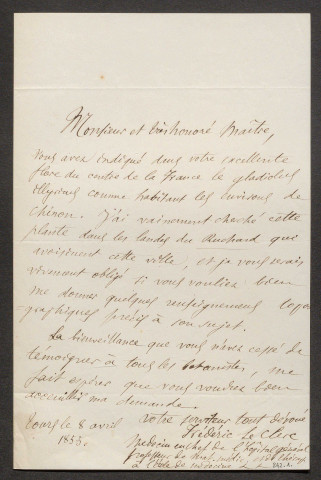 Monsieur et très honoré Maître,
Vous avez indiqué dans votre excellente
flore du centre de la France le gladiolus
illyricus comme habitant les environs de
Chinon. J'ai vainement cherché cette
plante dans les landes du Ruchard qui
avoisinent cette ville, et je vous serais
vivement obligé si vous vouliez bien
me donner quelques renseignements topo-
=graphiques précis à son sujet.
La bienveillance que vous n'avez cessé de
témoigner à tous les botanistes, me
fait espérer que vous voudrez bien
accueillir ma demande.
Votre serviteur tout dévoué
Tours le 8 avril
1853.
Frédéric Le Clerc
Médecin en chef de l'hôpital général
professeur de
à l'école de médecine